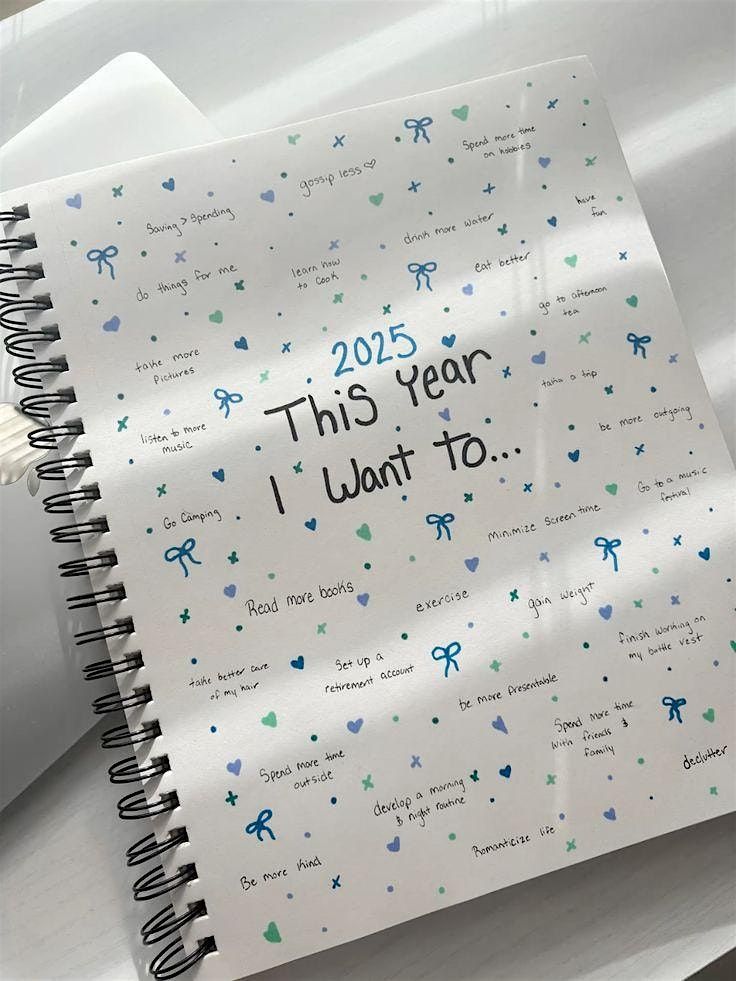 Spend more time
on hobbies
gossip less
Saving > Spending
have
fun
drink more water
do things for me
learn how
to cook
eat better
go to afternoon
tea
2025
take more
Pictures
This Year
take a trip
listen to more
music
be more outgoing
I Want To...
Go to a music
festival
Go Camping
minimize Screen time
Read more books
exercise
gain weight
finish working on
my battle vest
take better care
of my hair
Set up a
retirement account
be more presentable
Spend more time
with friends &
family
Spend more time
outside
declutter
develop a morning
& night routine
Romanticize life
Be more kind